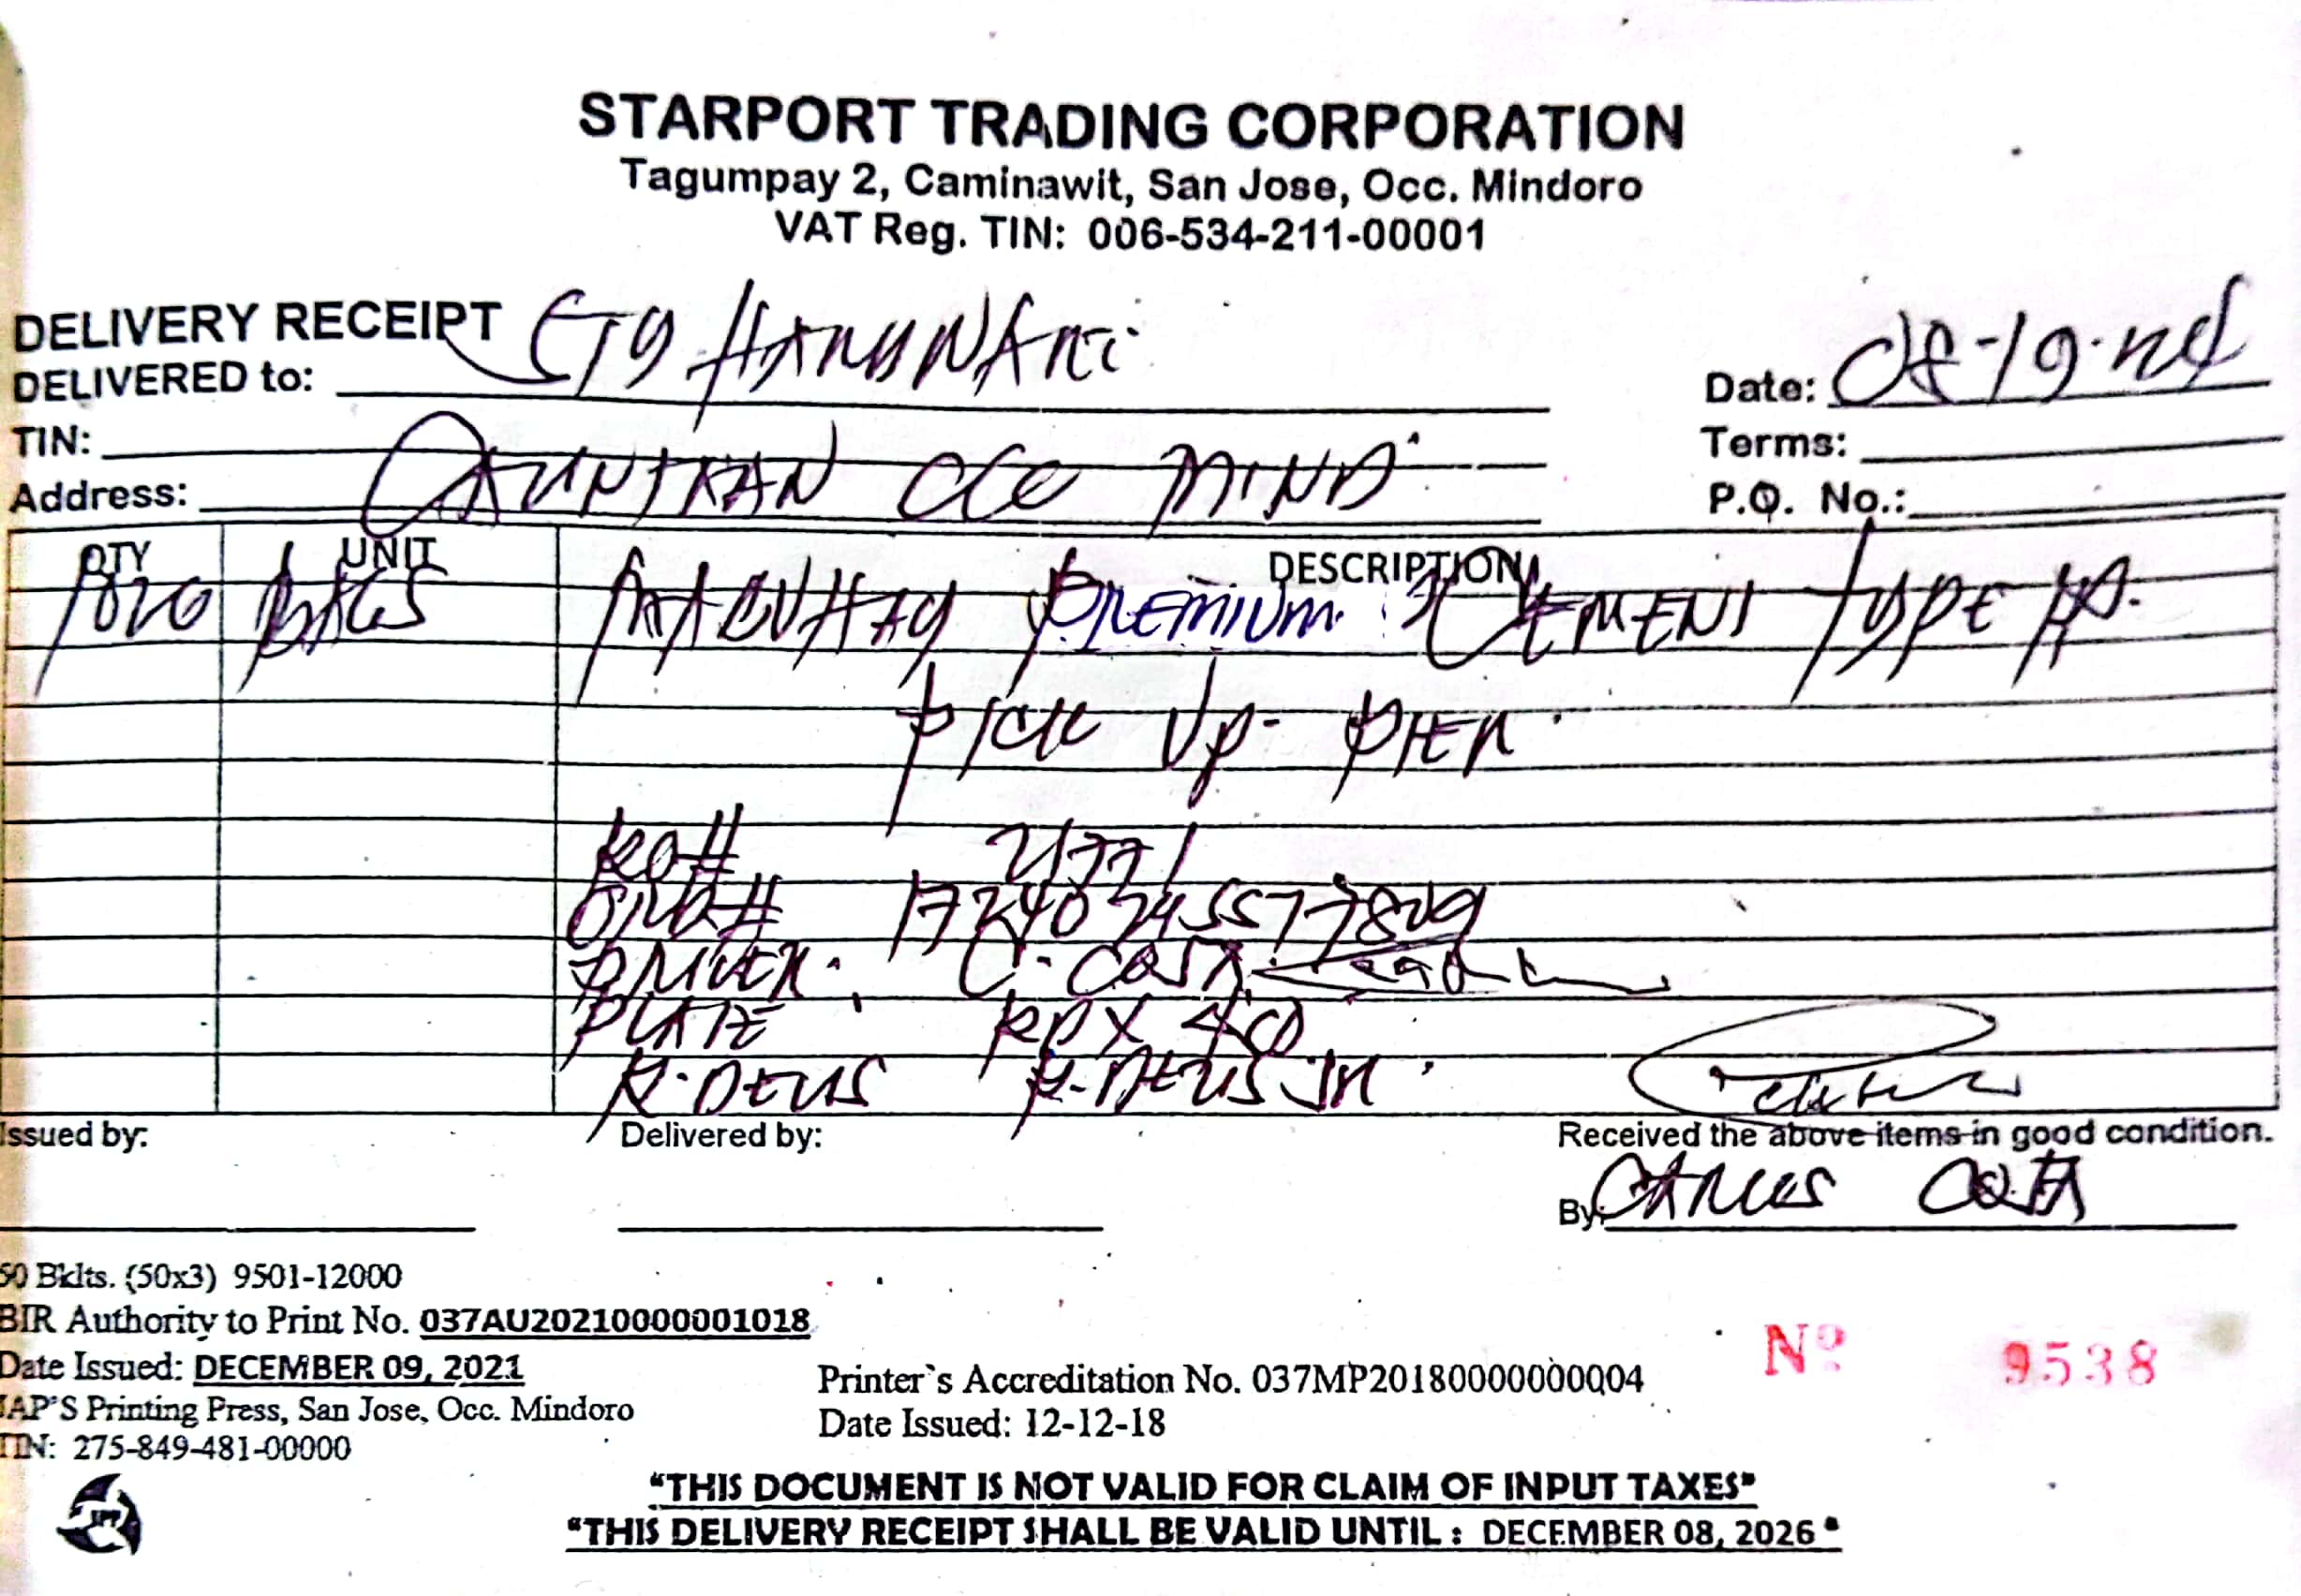 STARPORT TRADING CORPORATION
Tagumpay 2, Caminawit, San Jose, Occ. Mindoro
VAT Reg. TIN: 006-534-211-00001
DELIVERY RECEIPT
DELIVERED to: HARDWARE
Date: 08-19-24
TIN:
Terms:
Address: OCC MIND.
P.O. No.:
QTY UNIT DESCRIPTION
BAGS MABUHAY PREMIUM CEMENT TYPE
PICK UP- PIER.
RO# 21771
17240345577829
DRIVER: C. COSTA
PLATE
R. DEUS R. DEUS JR.
Issued by: Delivered by: Received the above items in good condition.
By: CARLOS COSTA
50 Bklts. (50x3) 9501-12000
BIR Authority to Print No. 037AU20210000001018
Date Issued: DECEMBER 09, 2021
JAP'S Printing Press, San Jose, Occ. Mindoro
TIN: 275-849-481-00000
Printer`s Accreditation No. 037MP20180000000004
Date Issued: 12-12-18
Nº 9538
"THIS DOCUMENT IS NOT VALID FOR CLAIM OF INPUT TAXES"
"THIS DELIVERY RECEIPT SHALL BE VALID UNTIL : DECEMBER 08, 2026"